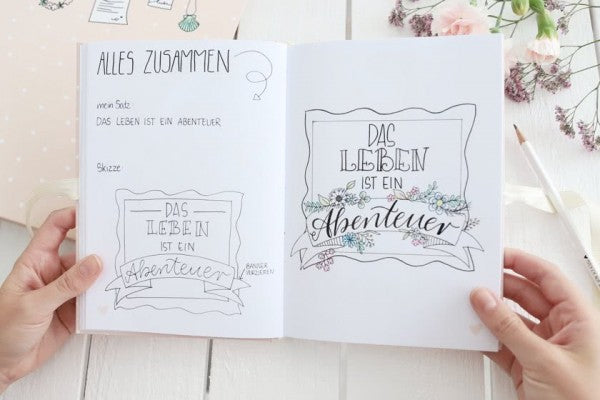 ALLES ZUSAMMEN
mein Satz
DAS LEBEN IST EIN ABENTEUER
Skizze:
DAS
LEBEN
IST EIN
Abenteuer
BANNER
VERZIEREN
DAS
LEBEN
IST EIN
Abenteuer